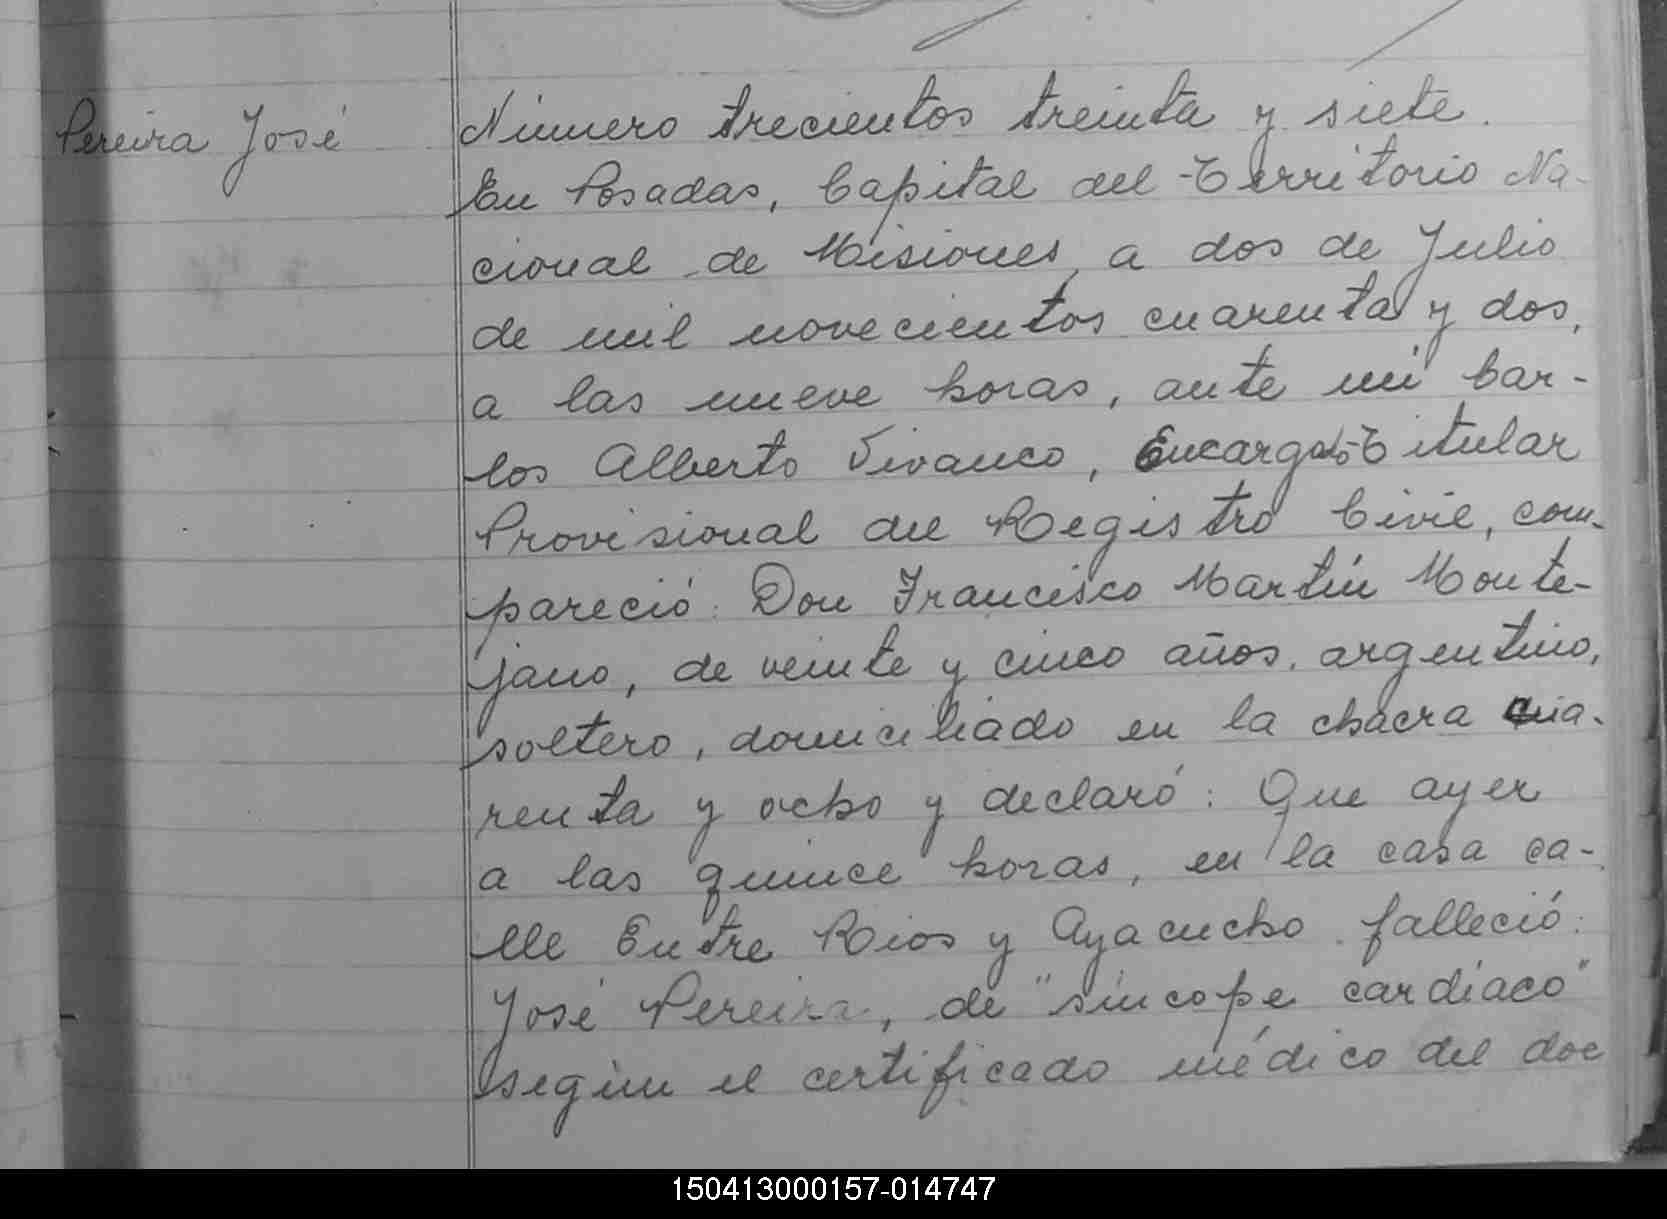 Pereira José
Número trecientos treinta y siete.
En Posadas, Capital del Territorio Na-
cional de Misiones, a dos de Julio
de mil novecientos cuarenta y dos,
a las nueve horas, ante mí Car-
los Alberto Vivanco, Encargado Titular
Provisional del Registro Civil, com-
pareció: Don Francisco Martín Monte-
jano, de veinte y cinco años, argentino,
soltero, domiciliado en la chacra cua-
renta y ocho y declaró: Que ayer
a las quince horas, en la casa ca-
lle Entre Rios y Ayacucho falleció:
José Pereira, de "síncope cardíaco"
según el certificado médico del doc
150413000157-014747